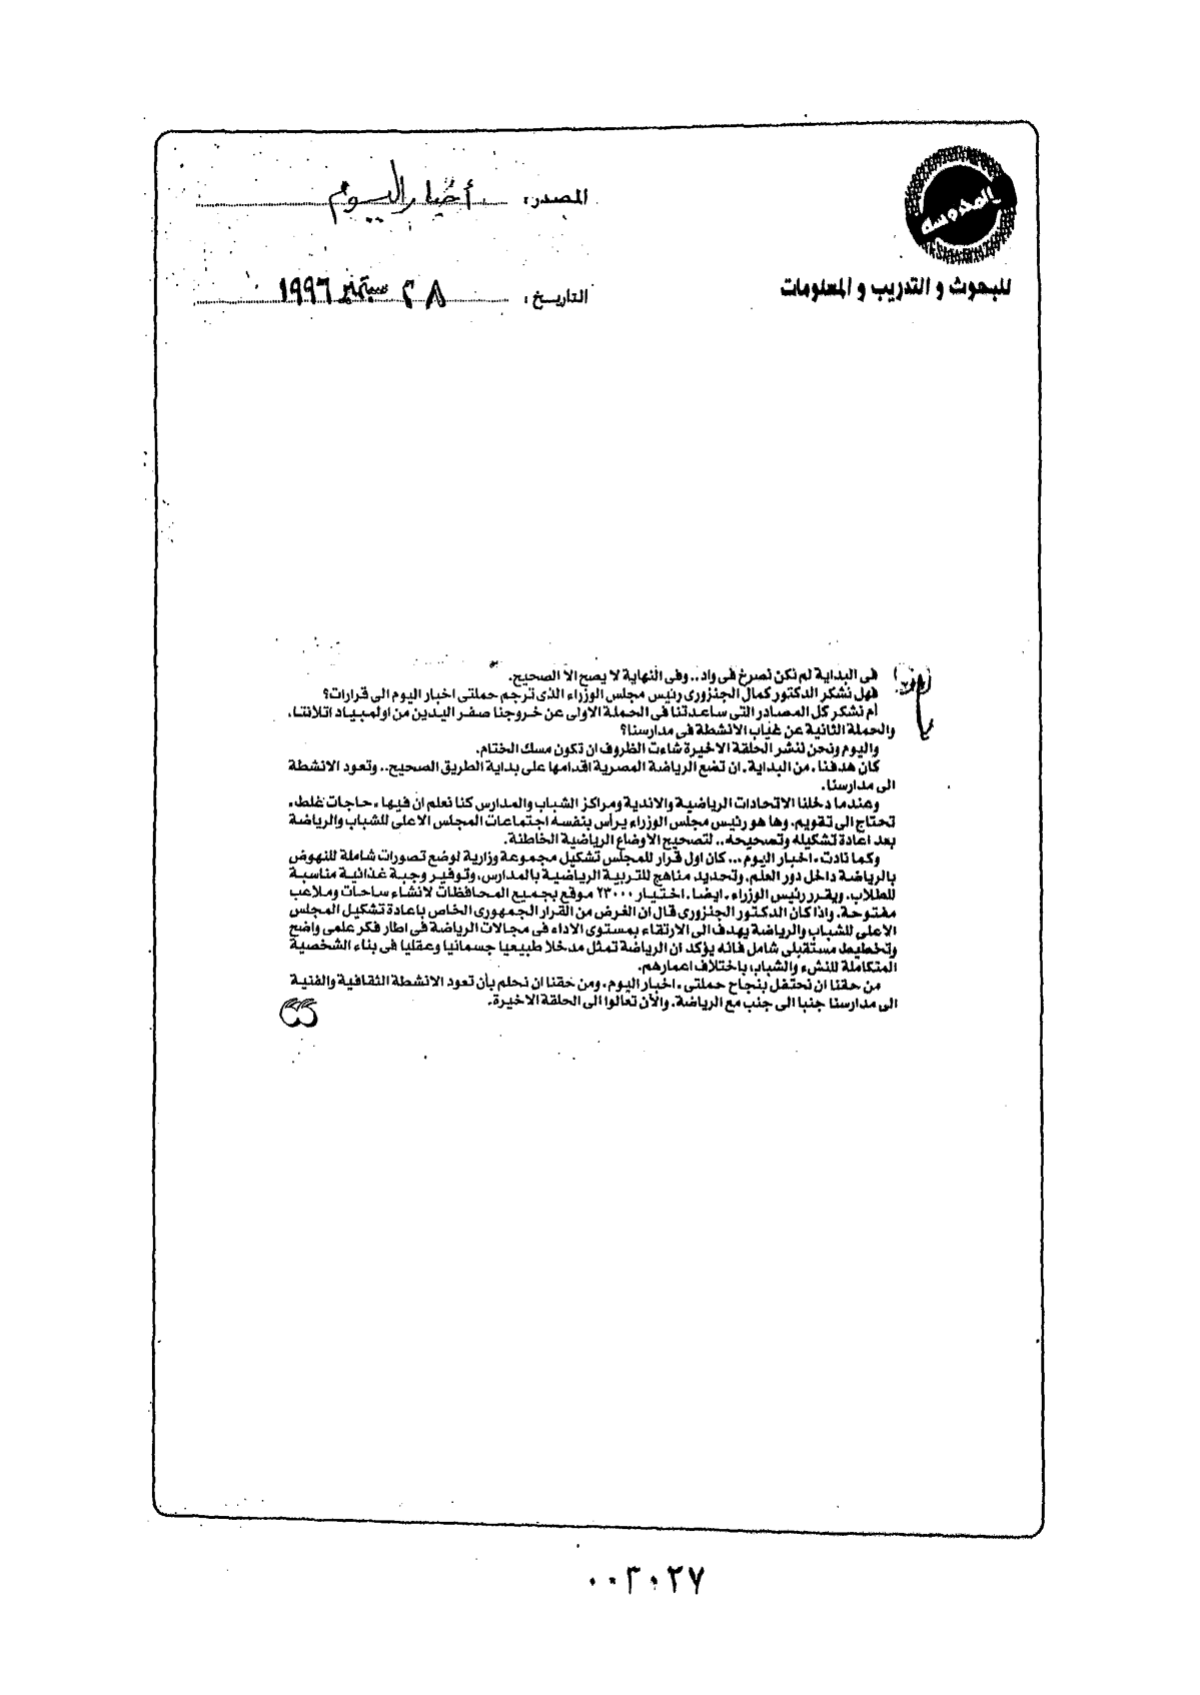 المحروسة
للبحوث و التدريب و المعلومات
المصدر: أخبار اليوم
التاريخ: ٢٨ سبتمبر ١٩٩٦
فى البداية لم نكن نصرخ فى واد.. وفى النهاية لا يصح الا الصحيح.
فهل نشكر الدكتور كمال الجنزورى رئيس مجلس الوزراء الذى ترجم حملتى اخبار اليوم الى قرارات؟
أم نشكر كل المصادر التى ساعدتنا فى الحملة الاولى عن خروجنا صفر اليدين من اولمبياد اتلانتا،
والحملة الثانية عن غياب الانشطة فى مدارسنا؟
واليوم ونحن ننشر الحلقة الاخيرة شاءت الظروف ان تكون مسك الختام.
كان هدفنا، من البداية، ان تضع الرياضة المصرية اقدامها على بداية الطريق الصحيح.. وتعود الانشطة
الى مدارسنا.
وعندما دخلنا الاتحادات الرياضية والاندية ومراكز الشباب والمدارس كنا نعلم ان فيها «حاجات غلط»
تحتاج الى تقويم، وها هو رئيس مجلس الوزراء يرأس بنفسه اجتماعات المجلس الاعلى للشباب والرياضة
بعد اعادة تشكيله وتصحيحه.. لتصحيح الاوضاع الرياضية الخاطئة.
وكما نادت «اخبار اليوم»... كان اول قرار للمجلس تشكيل مجموعة وزارية لوضع تصورات شاملة للنهوض
بالرياضة داخل دور العلم، وتحديد مناهج للتربية الرياضية بالمدارس، وتوفير وجبة غذائية مناسبة
للطلاب. ويقرر رئيس الوزراء، ايضا، اختيار ٢٣٠٠٠ موقع بجميع المحافظات لانشاء ساحات وملاعب
مفتوحة. واذا كان الدكتور الجنزورى قال ان الغرض من القرار الجمهورى الخاص باعادة تشكيل المجلس
الاعلى للشباب والرياضة يهدف الى الارتقاء بمستوى الاداء فى مجالات الرياضة فى اطار فكر علمى واضح
وتخطيط مستقبلى شامل فانه يؤكد ان الرياضة تمثل مدخلا طبيعيا جسمانيا وعقليا فى بناء الشخصية
المتكاملة للنشء والشباب باختلاف اعمارهم.
من حقنا ان نحتفل بنجاح حملتى «اخبار اليوم» ومن حقنا ان نحلم بأن تعود الانشطة الثقافية والفنية
الى مدارسنا جنبا الى جنب مع الرياضة. والآن تعالوا الى الحلقة الاخيرة.
٠٠٣٠٢٧